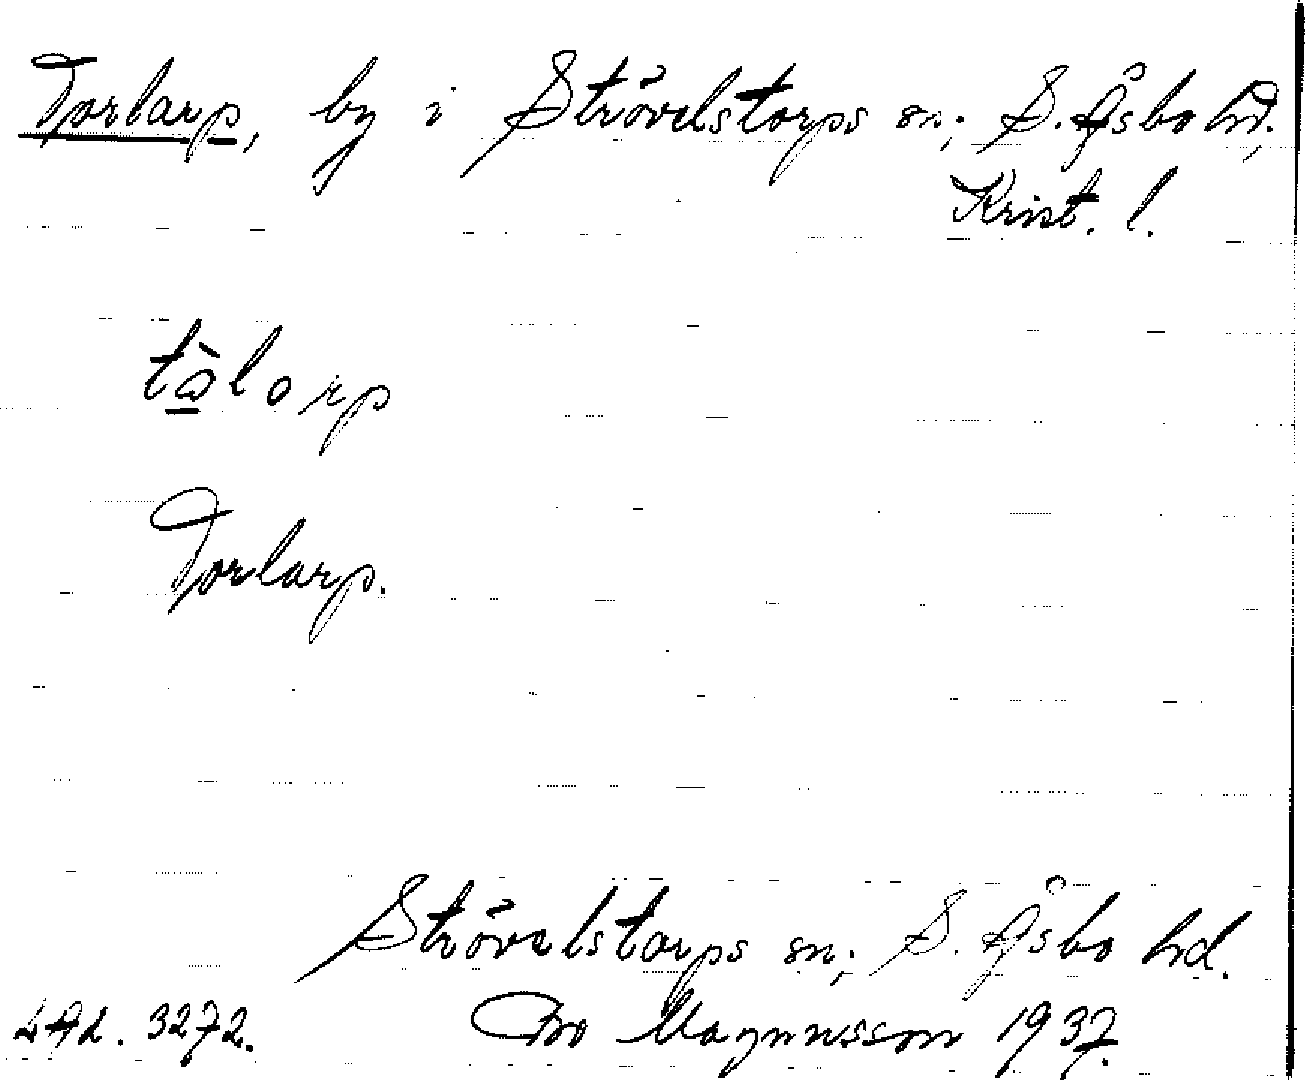 Torlarp, by i Strövelstorps sn; S. Åsbo hd.
Krist. l.
tå̀lorp
Torlarp.
Strövelstorps sn; S. Åsbo hd.
LAL. 3272. Bro Magnusson 1937.